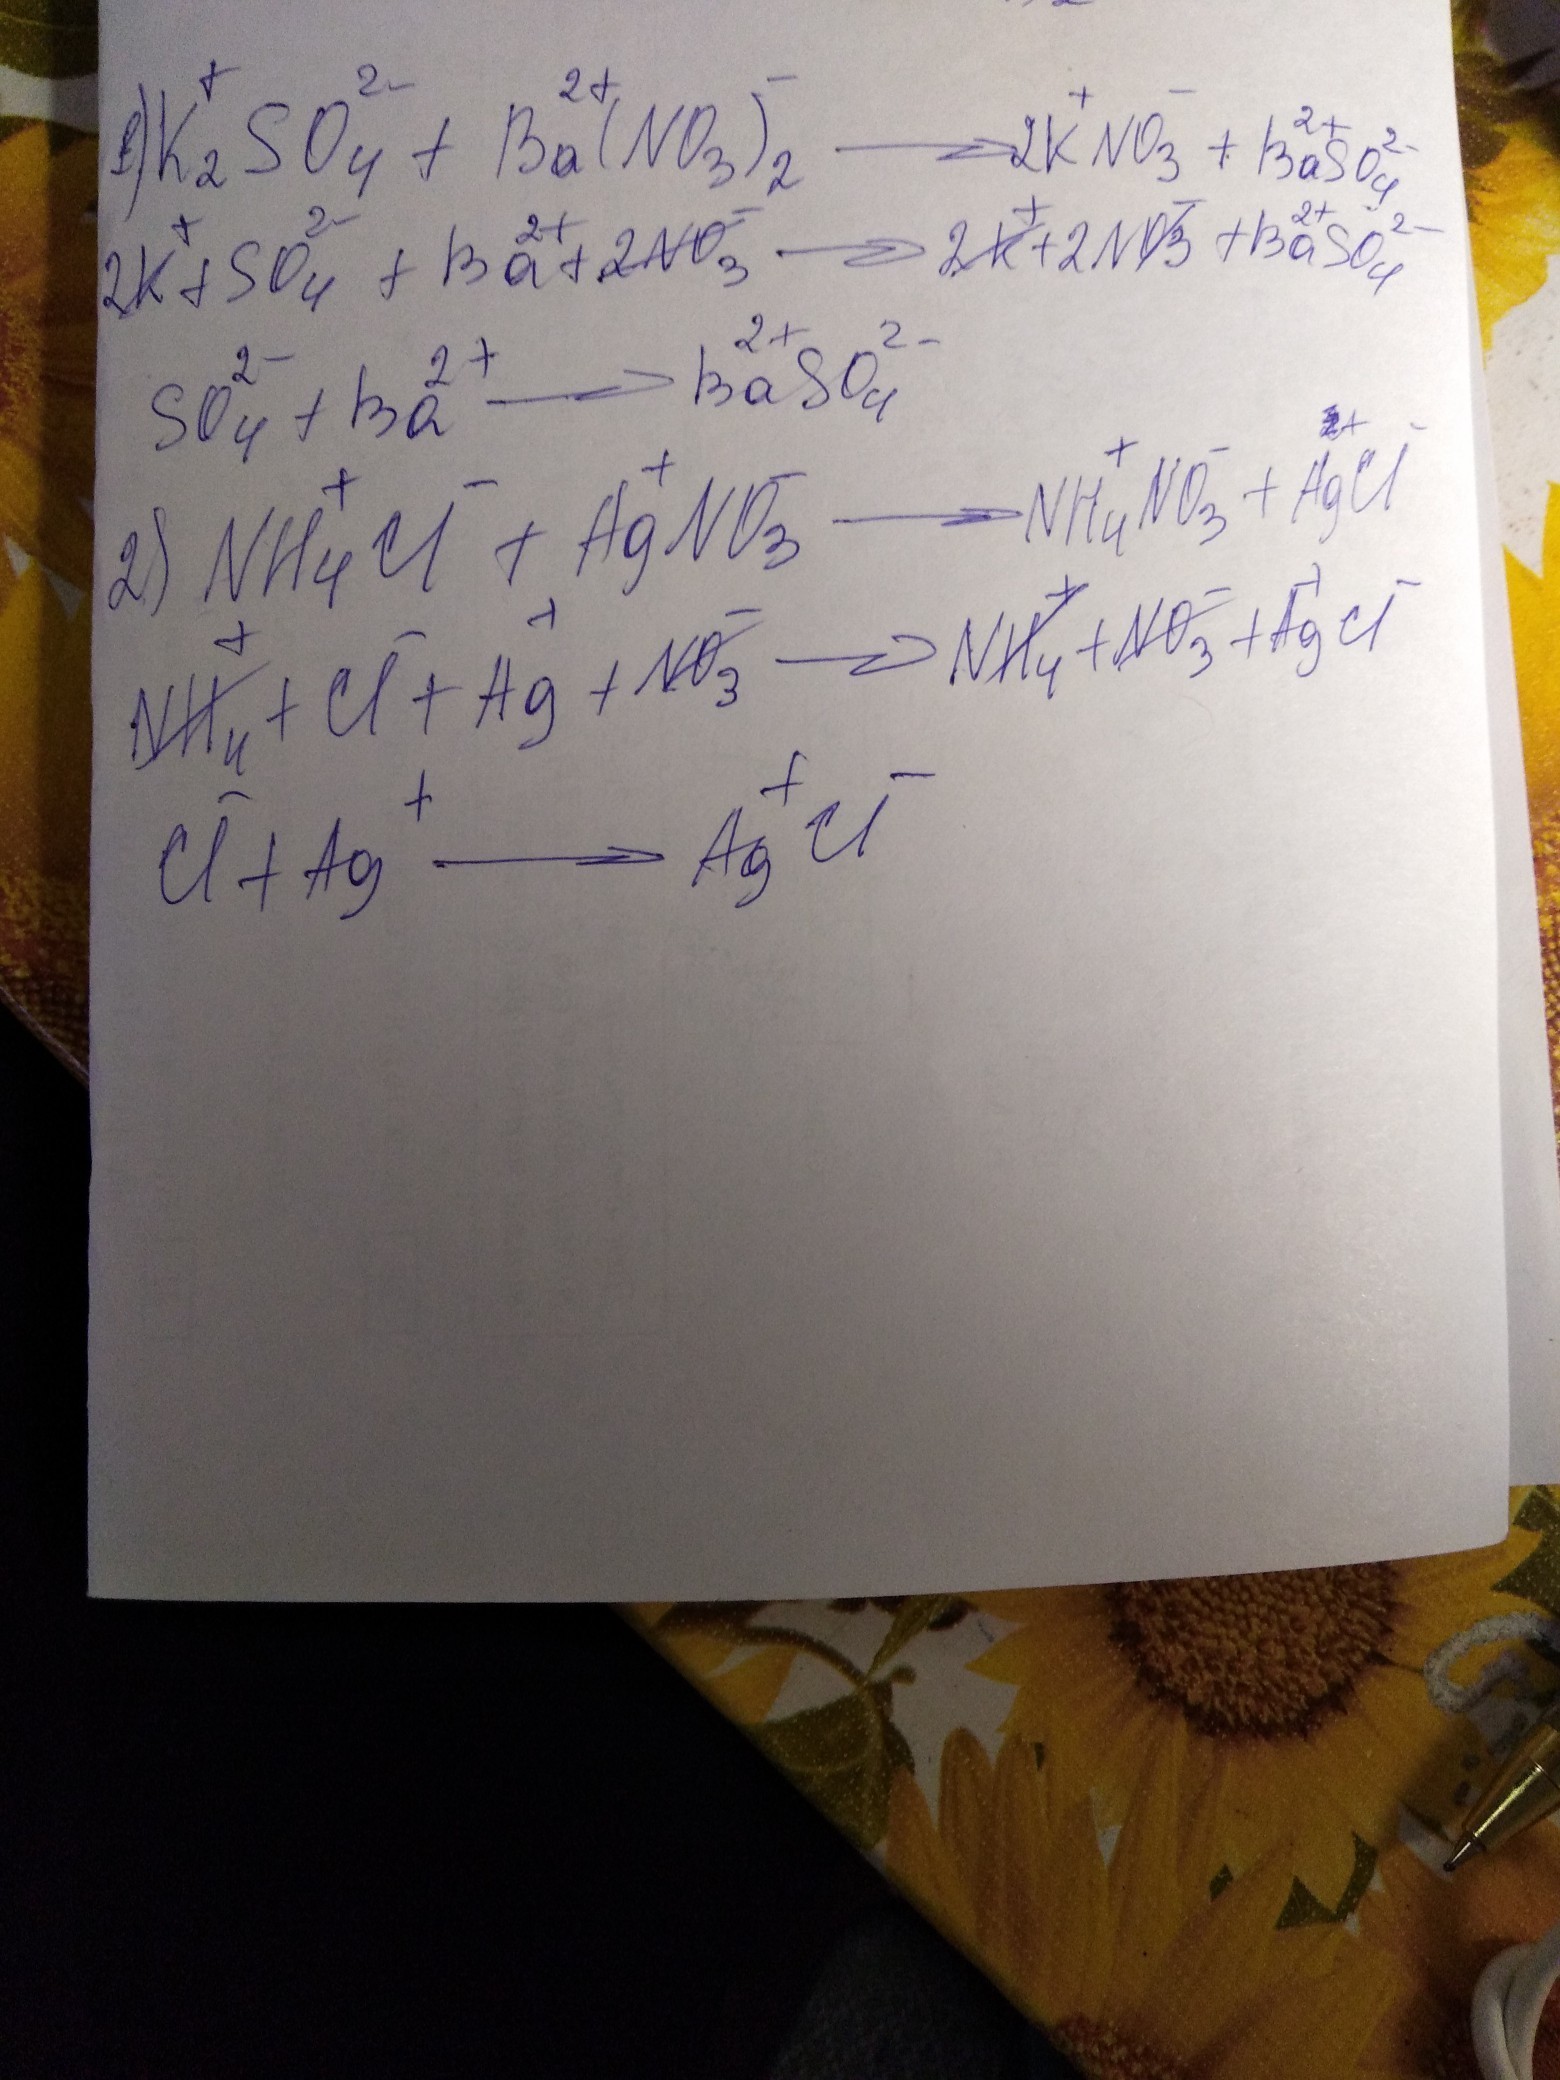 1) K₂⁺SO₄²⁻ + Ba²⁺(NO₃)₂⁻ → 2K⁺NO₃⁻ + Ba²⁺SO₄²⁻
2K⁺ + SO₄²⁻ + Ba²⁺ + 2NO₃⁻ → 2K⁺ + 2NO₃⁻ + Ba²⁺SO₄²⁻
SO₄²⁻ + Ba²⁺ → Ba²⁺SO₄²⁻
2) NH₄⁺Cl⁻ + Ag⁺NO₃⁻ → NH₄⁺NO₃⁻ + Ag⁺Cl⁻
NH₄⁺ + Cl⁻ + Ag⁺ + NO₃⁻ → NH₄⁺ + NO₃⁻ + Ag⁺Cl⁻
Cl⁻ + Ag⁺ → Ag⁺Cl⁻